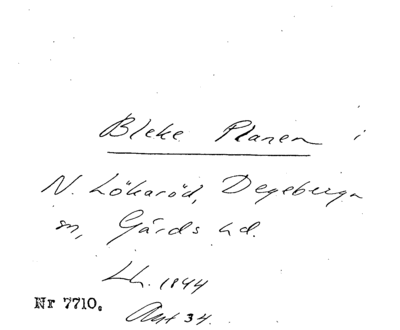 Bleke Planen i
N. Lökaröd, Degeberga
sn, Gärds hd.
Lh. 1944
Nr 7710.
34.